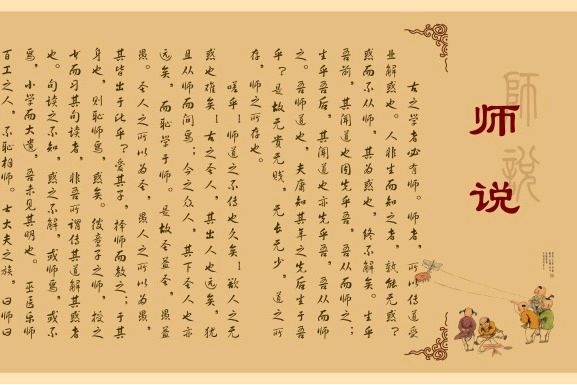 師説
师说
古之学者必有师。师者，所以传道受
业解惑也。人非生而知之者，孰能无惑？
惑而不从师，其为惑也，终不解矣。生乎
吾前，其闻道也固先乎吾，吾从而师之；
生乎吾后，其闻道也亦先乎吾，吾从而师
之。吾师道也，夫庸知其年之先后生于吾
乎？是故无贵无贱，无长无少，道之所
存，师之所存也。
嗟乎！师道之不传也久矣！欲人之无
惑也难矣！古之圣人，其出人也远矣，犹
且从师而问焉；今之众人，其下圣人也亦
远矣，而恥学于师。是故圣益圣，愚益
愚。圣人之所以为圣，愚人之所以为愚，
其皆出于此乎？爱其子，择师而教之；于其
身也，则恥师焉，惑矣。彼童子之师，授之
书而习其句读者，非吾所谓传其道解其惑者
也。句读之不知，惑之不解，或师焉，或不
焉，小学而大遗，吾未见其明也。巫医乐师
百工之人，不恥相师。士大夫之族，曰师曰